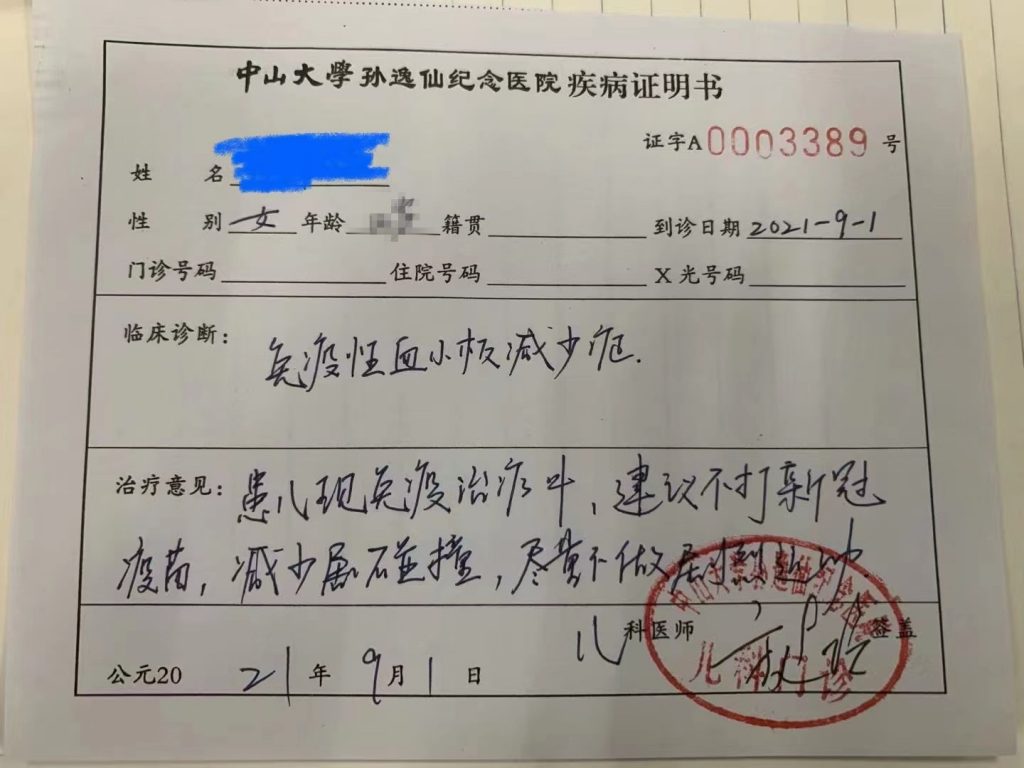 中山大學孙逸仙纪念医院疾病证明书
证字A0003389号
姓 名
性 别 女 年龄 籍贯 到诊日期 2021-9-1
门诊号码 住院号码 X光号码
临床诊断：
免疫性血小板减少症.
治疗意见：患儿现免疫治疗中，建议不打新冠
疫苗，减少剧碰撞，尽量不做剧烈运动.
儿科医师 签盖
儿科门诊
公元2021年9月1日